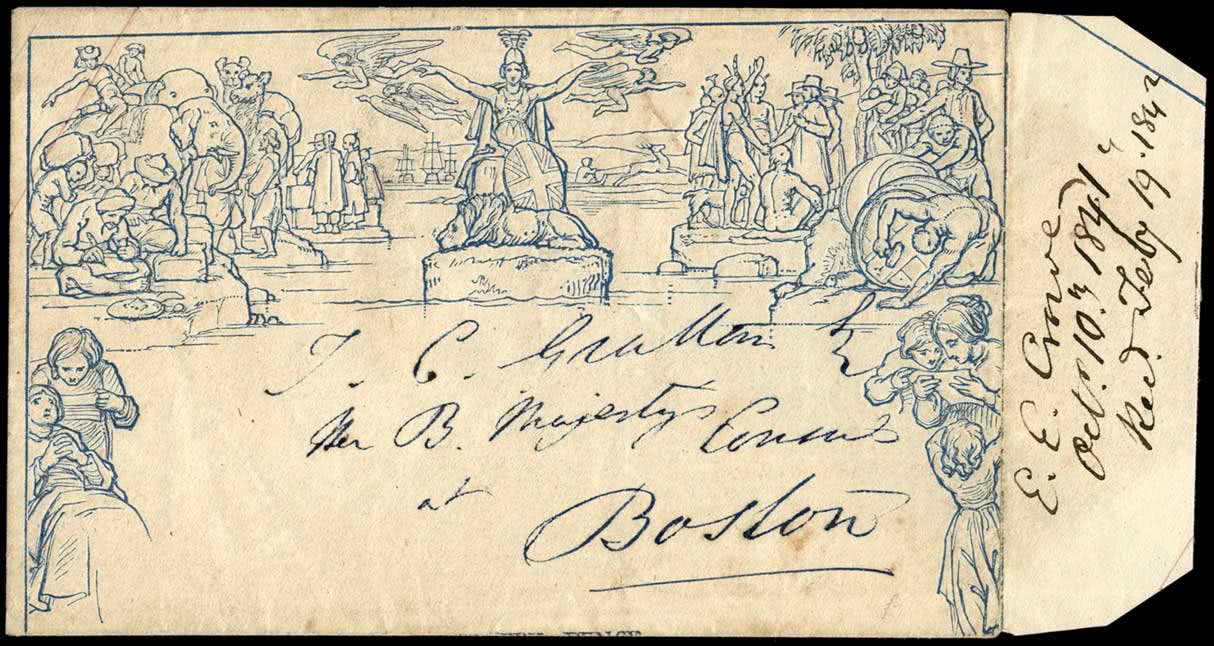 T. C. Grattan
Her B. Majestys Consul
at
Boston
E. E. Crowe
10. 1841
Recd. Feby 19. 1842
PENCE